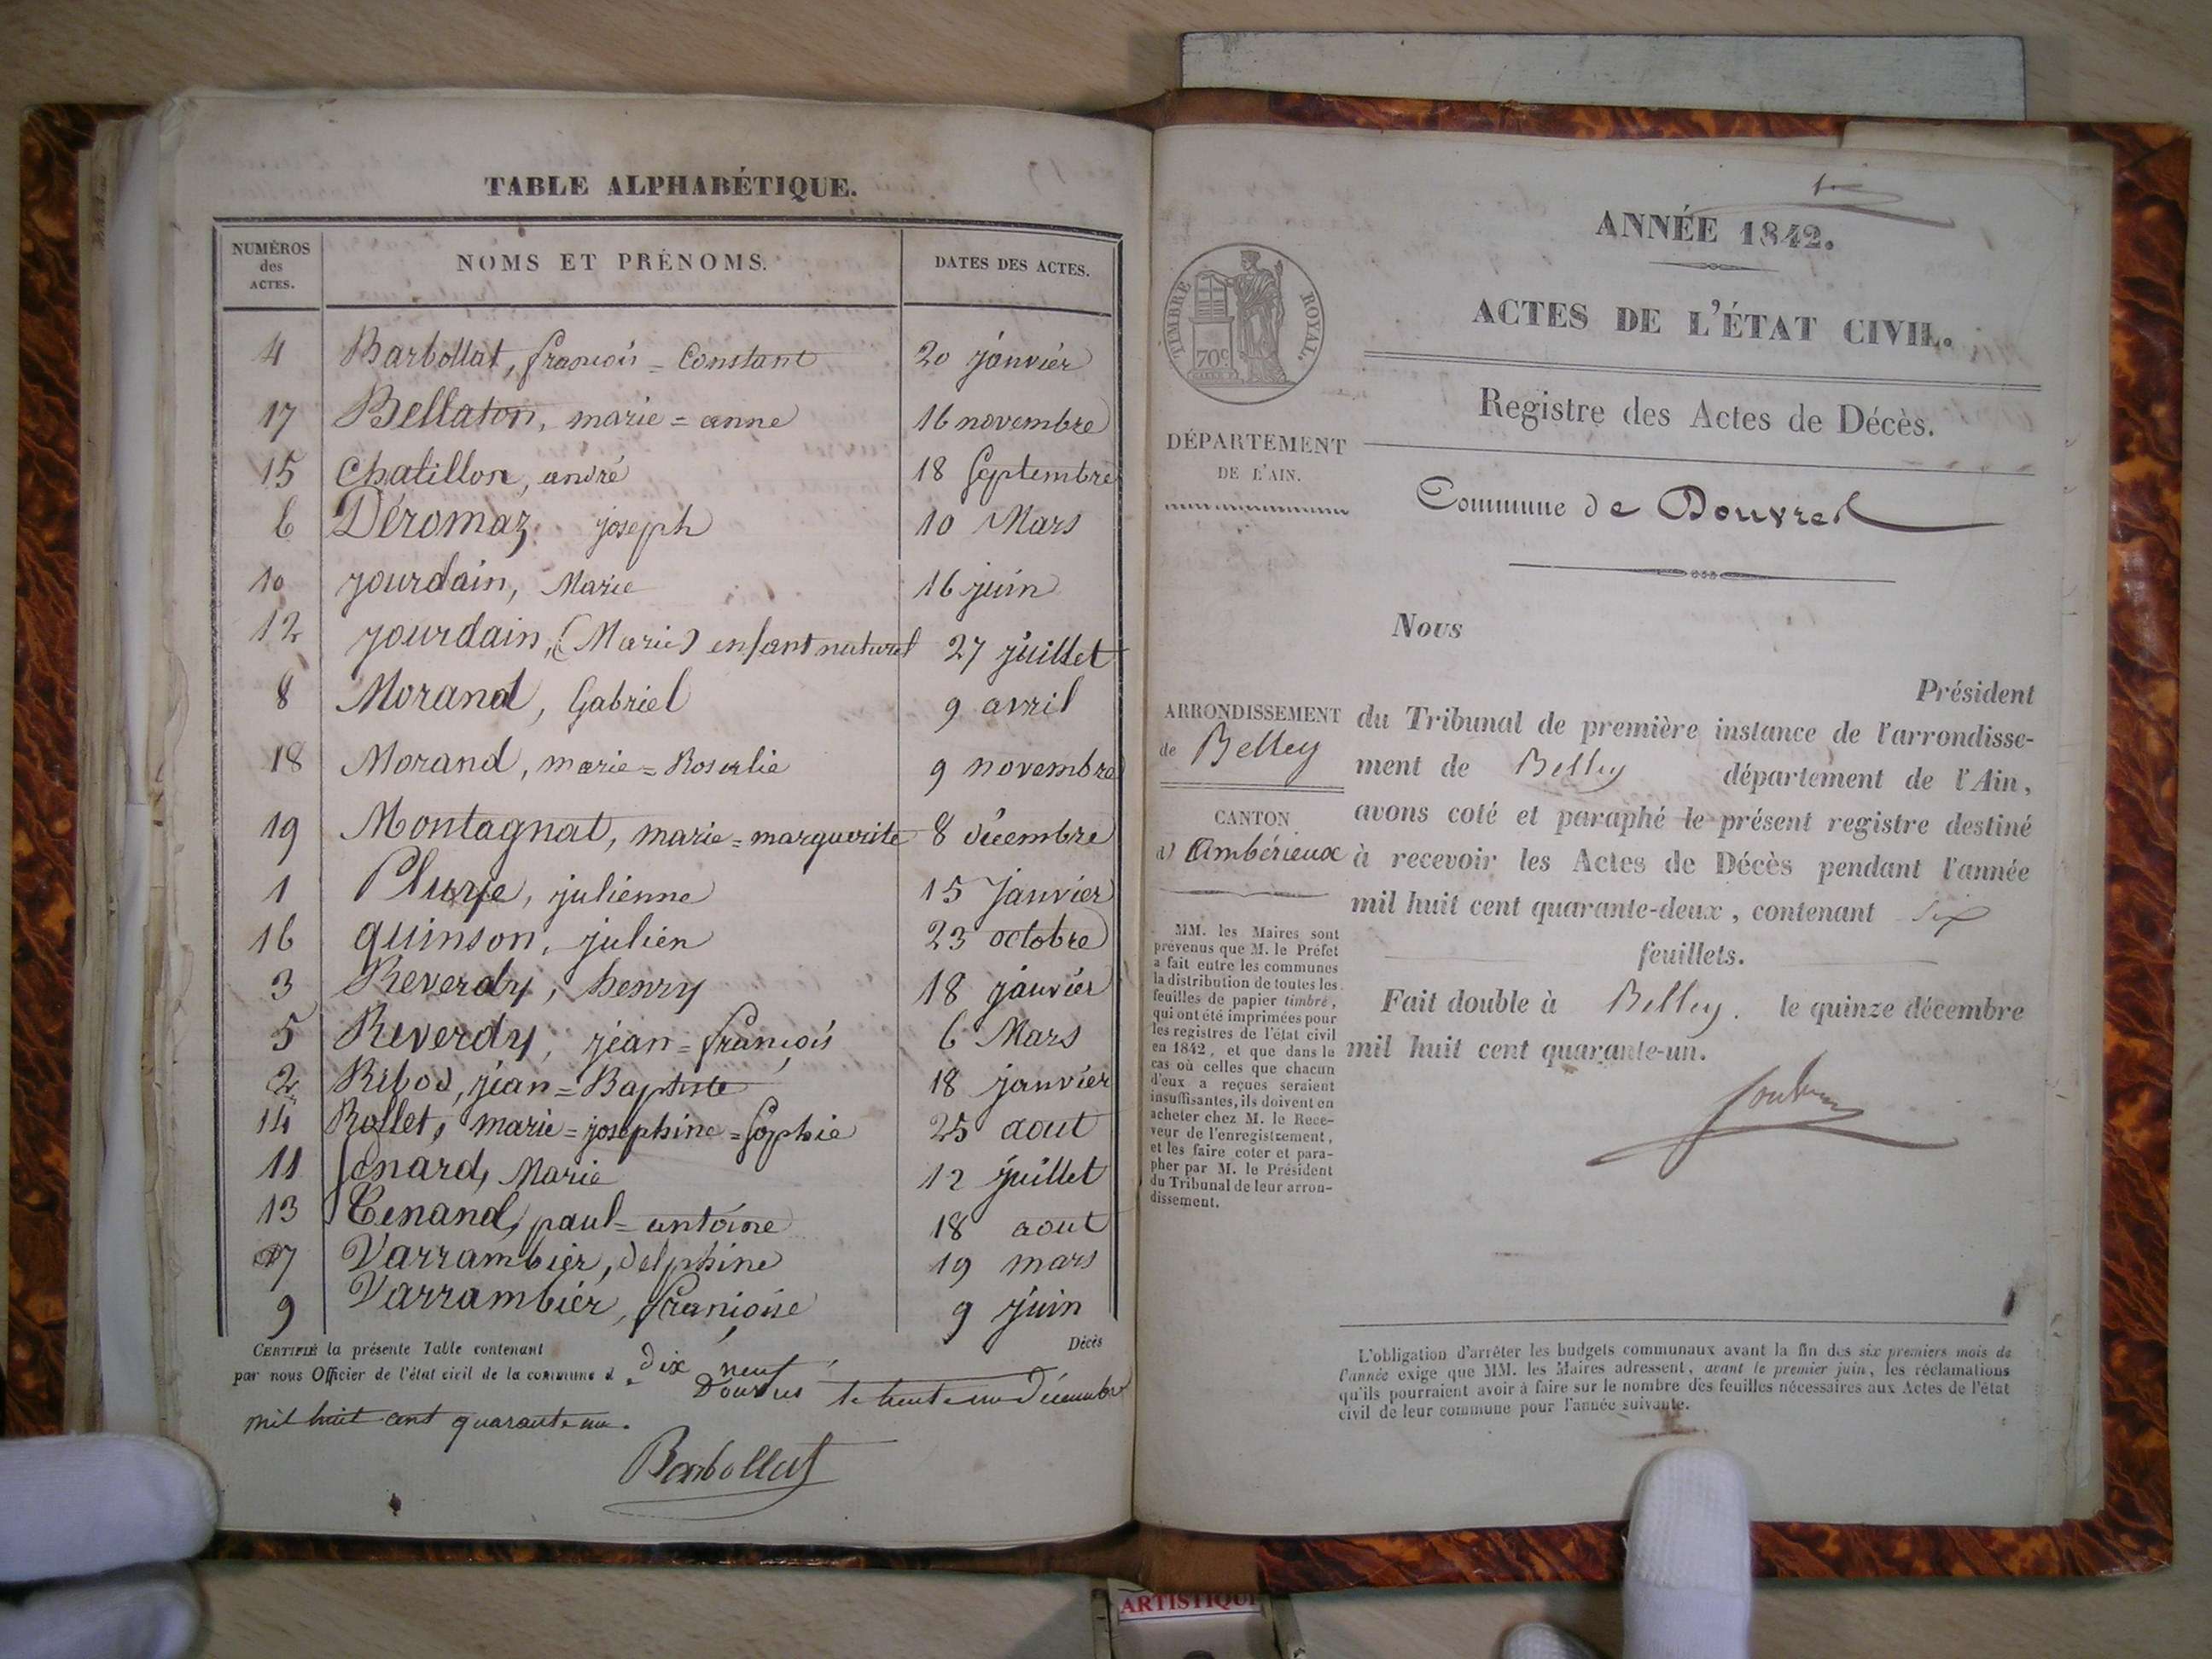 TABLE ALPHABÉTIQUE.
NUMÉROS des ACTES. NOMS ET PRÉNOMS. DATES DES ACTES.
4 Barbollat, françois = Constant 20 janvier
17 Bellaton, marie = anne 16 novembre
15 Chatillon, andré 18 Septembre
6 Déromaz joseph 10 Mars
10 jourdain, Marie 16 juin
12 jourdain, (Marie) enfant naturel 27 juillet
8 Morand, Gabriel 9 avril
18 Morand, marie = Roserlie 9 novembre
19 Montagnat, marie = marguerite 8 décembre
1 julienne 15 Janvier
16 quinson, julien 23 octobre
3 Reverdy, henry 18 janvier
5 Reverdy, jean = françois 6 Mars
2 Ribod, jean = Baptiste 18 janvier
14 Rollet, marie = josephine = Sophie 25 aout
11 Senard, Marie 12 juillet
13 Tenand, paul = antoine 18 aout
7 Varrambier, delphine 19 mars
9 Varrambier, françoise 9 juin
CERTIFIÉ la présente Table contenant dix neuf Décès
par nous Officier de l'état civil de la commune d Douvres le trente un Décembre
mil huit cent quarante un.
Barbollat
ANNÉE 1842.
ACTES DE L'ÉTAT CIVIL.
TIMBRE ROYAL.
70c
Registre des Actes de Décès.
DÉPARTEMENT
DE L'AIN.
Commune de Douvres
Nous
Président
ARRONDISSEMENT
de Belley
CANTON
d'Ambérieux
du Tribunal de première instance de l'arrondisse-
ment de Belley département de l'Ain,
avons coté et paraphé le présent registre destiné
à recevoir les Actes de Décès pendant l'année
mil huit cent quarante-deux, contenant six
feuillets.
Fait double à Belley. le quinze décembre
mil huit cent quarante-un.
MM. les Maires sont
prévenus que M. le Préfet
a fait entre les communes
la distribution de toutes les
feuilles de papier timbré,
qui ont été imprimées pour
les registres de l'état civil
en 1842, et que dans le
cas où celles que chacun
d'eux a reçues seraient
insuffisantes, ils doivent en
acheter chez M. le Rece-
veur de l'enregistrement,
et les faire coter et para-
pher par M. le Président
du Tribunal de leur arron-
dissement.
L'obligation d'arrêter les budgets communaux avant la fin des six premiers mois de
l'année exige que MM. les Maires adressent, avant le premier juin, les réclamations
qu'ils pourraient avoir à faire sur le nombre des feuilles nécessaires aux Actes de l'état
civil de leur commune pour l'année suivante.
ARTISTIQU